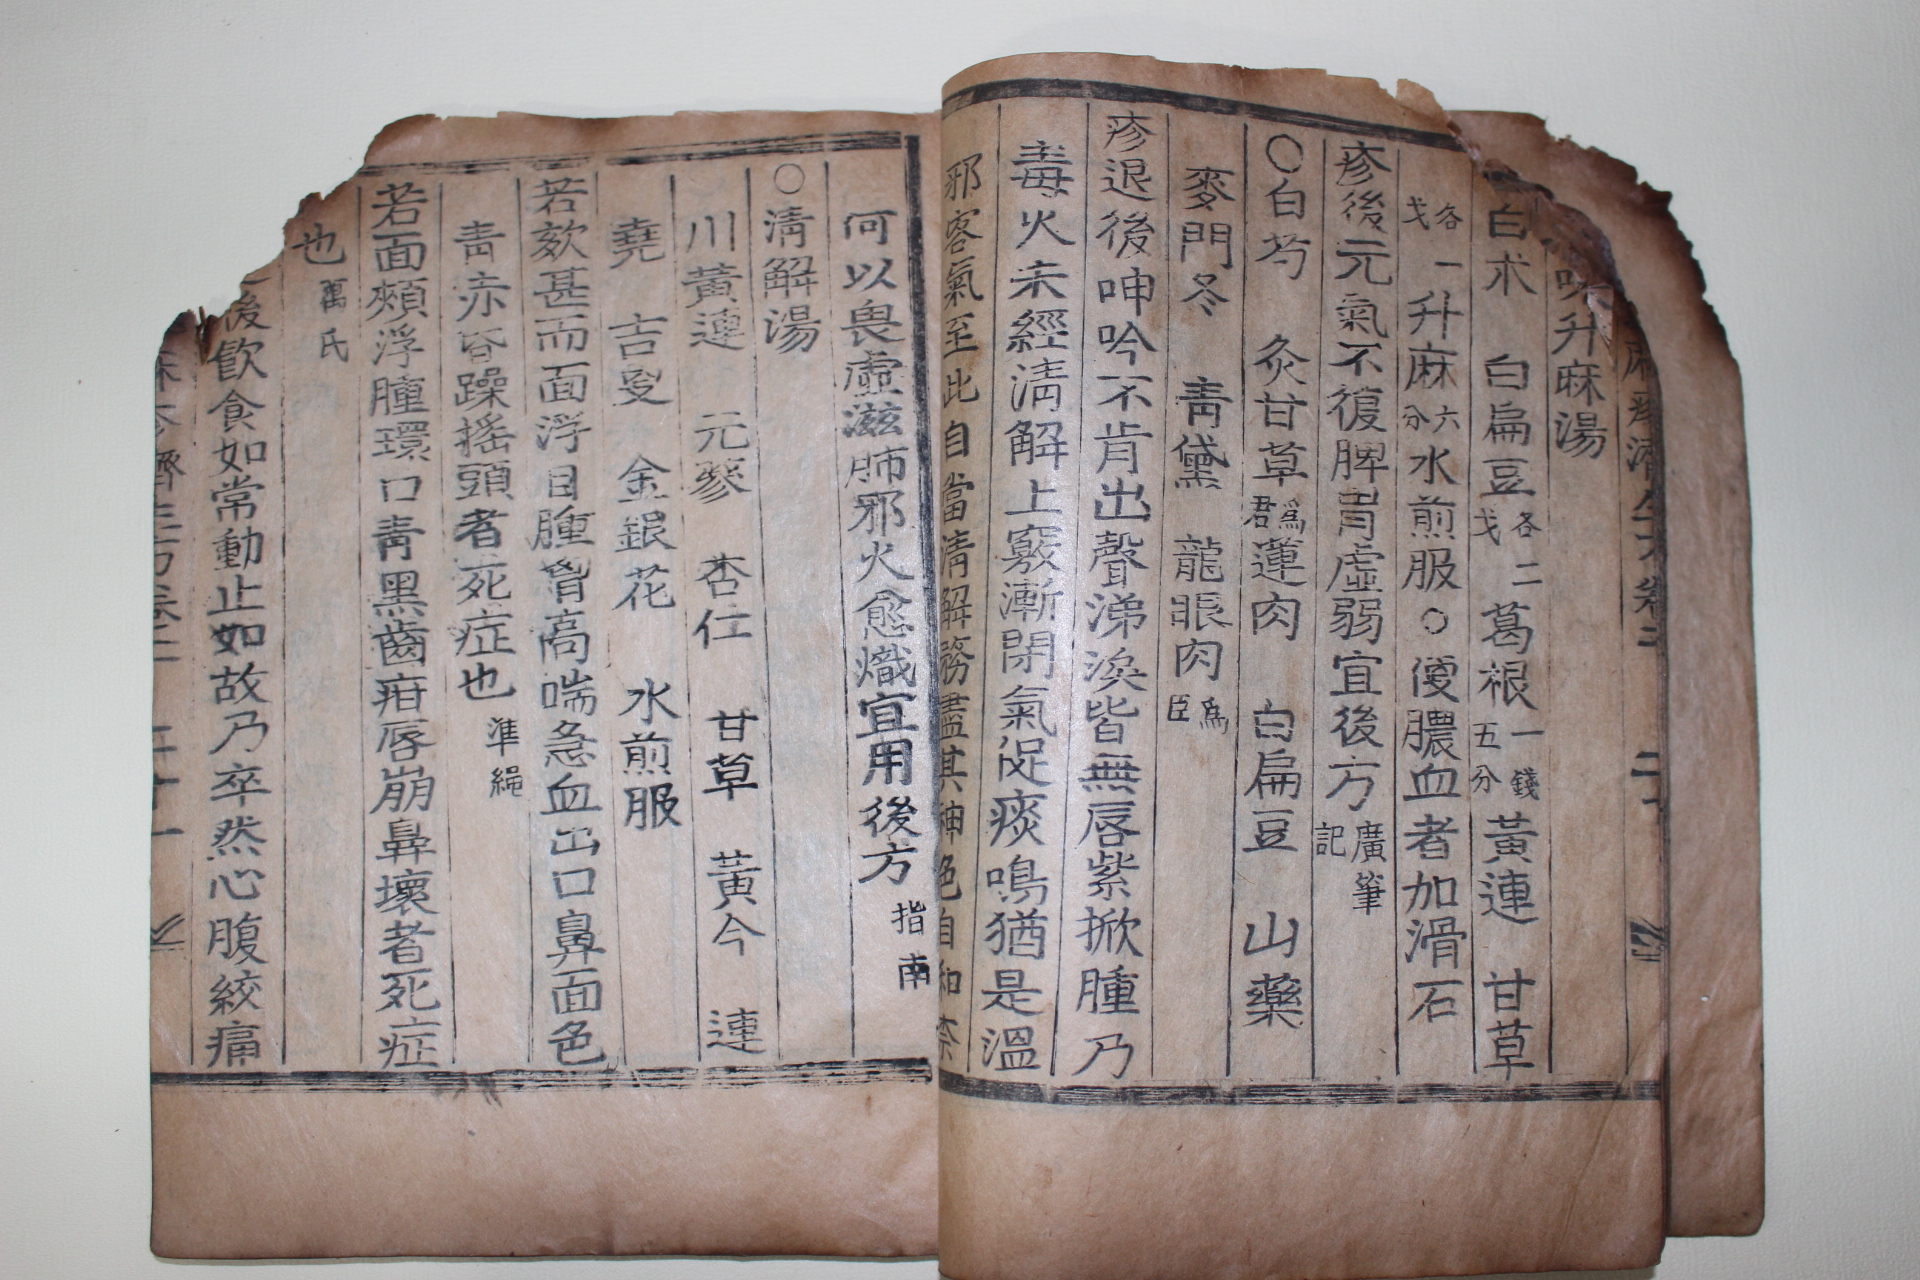 味升麻湯
白朮 白扁豆各二戈 葛根一錢五分 黃連 甘草
各一戈 升麻六分 水煎服○便膿血者加滑石
疹後元氣不復脾胃虛弱宜後方廣筆記
○白芍 灸甘草爲君 蓮肉 白扁豆 山藥
麥門冬 靑黛 龍眼肉爲臣
疹退後呻吟不肯出聲涕淚皆無唇紫掀腫乃
毒火未經淸解上竅漸閉氣促痰鳴猶是溫
邪客氣至此自當淸解務盡其神色自如奈
何以畏虛滋肺邪火愈熾宜用後方指南
○淸解湯
川黃連 元蔘 杏仁 甘草 黃今 連
堯 吉更 金銀花 水煎服
若欬甚而面浮目腫胷高喘急血出口鼻面色
靑赤昏躁搖頭者死症也準繩
若面頰浮腫環口靑黑齒疳唇崩鼻壞者死症
也萬氏
後飮食如常動止如故乃卒然心腹絞痛
麻疹濟生方卷二 二十一